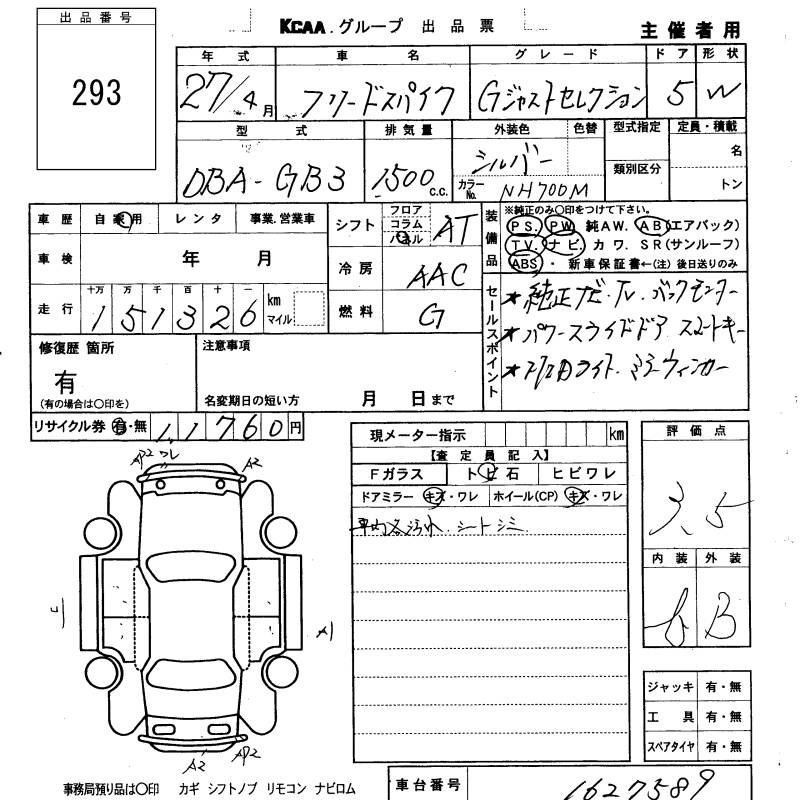 出品番号
293
KCAA.グループ 出品票
主催者用
年式 車名 グレード ドア 形状
27/4月 フリードスパイク Gジャストセレクション 5 W
型式 排気量 外装色 色替 型式指定 定員・積載
DBA-GB3 1500 c.c. シルバー 名
カラーNo. NH700M 類別区分 トン
車歴 自家用 レンタ 事業.営業車
シフト フロア コラム パネル AT
装備品 ※純正のみ○印をつけて下さい。
PS. PW 純AW. AB(エアバック)
TV. ナビ. カワ. SR(サンルーフ)
ABS ・ 新車保証書←(注)後日送りのみ
車検 年 月
冷房 AAC
走行 十万 万 千 百 十 一
151326 km マイル
燃料 G
セールスポイント
★純正ナビ・TV バックモニター
★パワースライドドア スマートキー
ライト ミラーウィンカー
修復歴 箇所
有
(有の場合は○印を)
注意事項
名変期日の短い方 月 日まで
リサイクル券 有・無 11760円
現メーター指示 km
【査定員記入】
Fガラス トビ石 ヒビワレ
ドアミラー キズ・ワレ ホイール(CP) キズ・ワレ
シートシミ
評価点
3.5
内装 外装
B
AP2
A2
A1
A2
AP2
ジャッキ 有・無
工具 有・無
スペアタイヤ 有・無
事務局預り品は○印 カギ シフトノブ リモコン ナビロム
車台番号 1627589